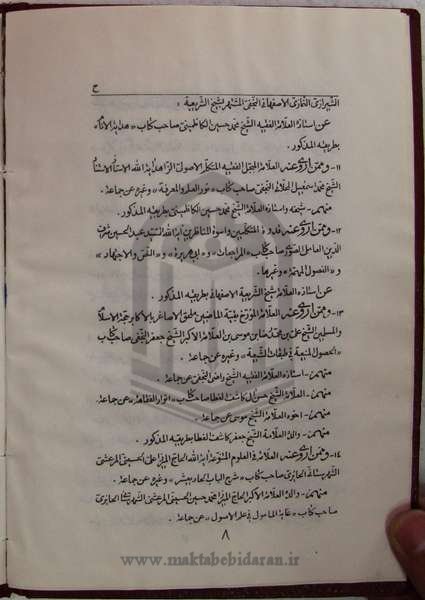 ح
الشيرازى النمازى الاصفهانى النجفى المشتهر بشيخ الشريعة :
عن استاذه العلامة الفقيه الشيخ محمد حسين الكاظمينى صاحب كتاب « هداية الانام »
بطريقه المذكور .
١١- وممن اروى عنه العلامة الفقيه المتكلم الاصولى الزاهد آية الله الاستاذ
الشيخ محمد اسمعيل المحلاتى النجفى صاحب كتاب « نور العلم والمعرفة » وغيره عن جماعة .
منهم- شيخه واستاذه العلامة الشيخ محمد حسين الكاظمينى بطريقه المذكور .
١٢- وممن اروى عنه قدوة المتكلمين واسوة المناظرين آية الله السيد عبد الحسين شرف
الدين العاملى الصورى صاحب كتاب « المراجعات » و « ابى هريرة » و « النص والاجتهاد »
و « الفصول المهمة » وغيرها .
عن استاذه العلامة شيخ الشريعة الاصفهانى بطريقه المذكور .
١٣- وممن اروى عنه العلامة المورخ بقية الماضين ملحق الاصاغر بالاكابر حجة الاسلام
والمسلمين الشيخ على بن محمد رضا بن موسى بن العلامة الاكبر الشيخ جعفر النجفى صاحب كتاب
« الحصون المنيعة فى طبقات الشيعة » وغيره عن جماعة .
منهم- استاذه العلامة الفقيه الشيخ راضى النجفى عن جماعة .
منهم- العلامة الشيخ حسن آل كاشف الغطا صاحب كتاب « انوار الفقاهة » عن جماعة .
منهم- اخوه العلامة الشيخ موسى عن جماعة .
منهم- والده العلامة الشيخ جعفر كاشف الغطا بطريقه المذكور .
١٤- وممن اروى عنه العلامة فى العلوم المتنوعة آية الله الحاج الميرزا على الحسينى المرعشى
الشهرستانى الحائرى صاحب كتاب « شرح الباب الحادى عشر » وغيره عن جماعة .
منهم- والده العلامة الاكبر الحاج الميرزا محمد حسين الحسينى المرعشى الشهرستانى الحائرى
صاحب كتاب « غاية المأمول فى علم الاصول » عن جماعة .
٨
www.maktabebidaran.ir